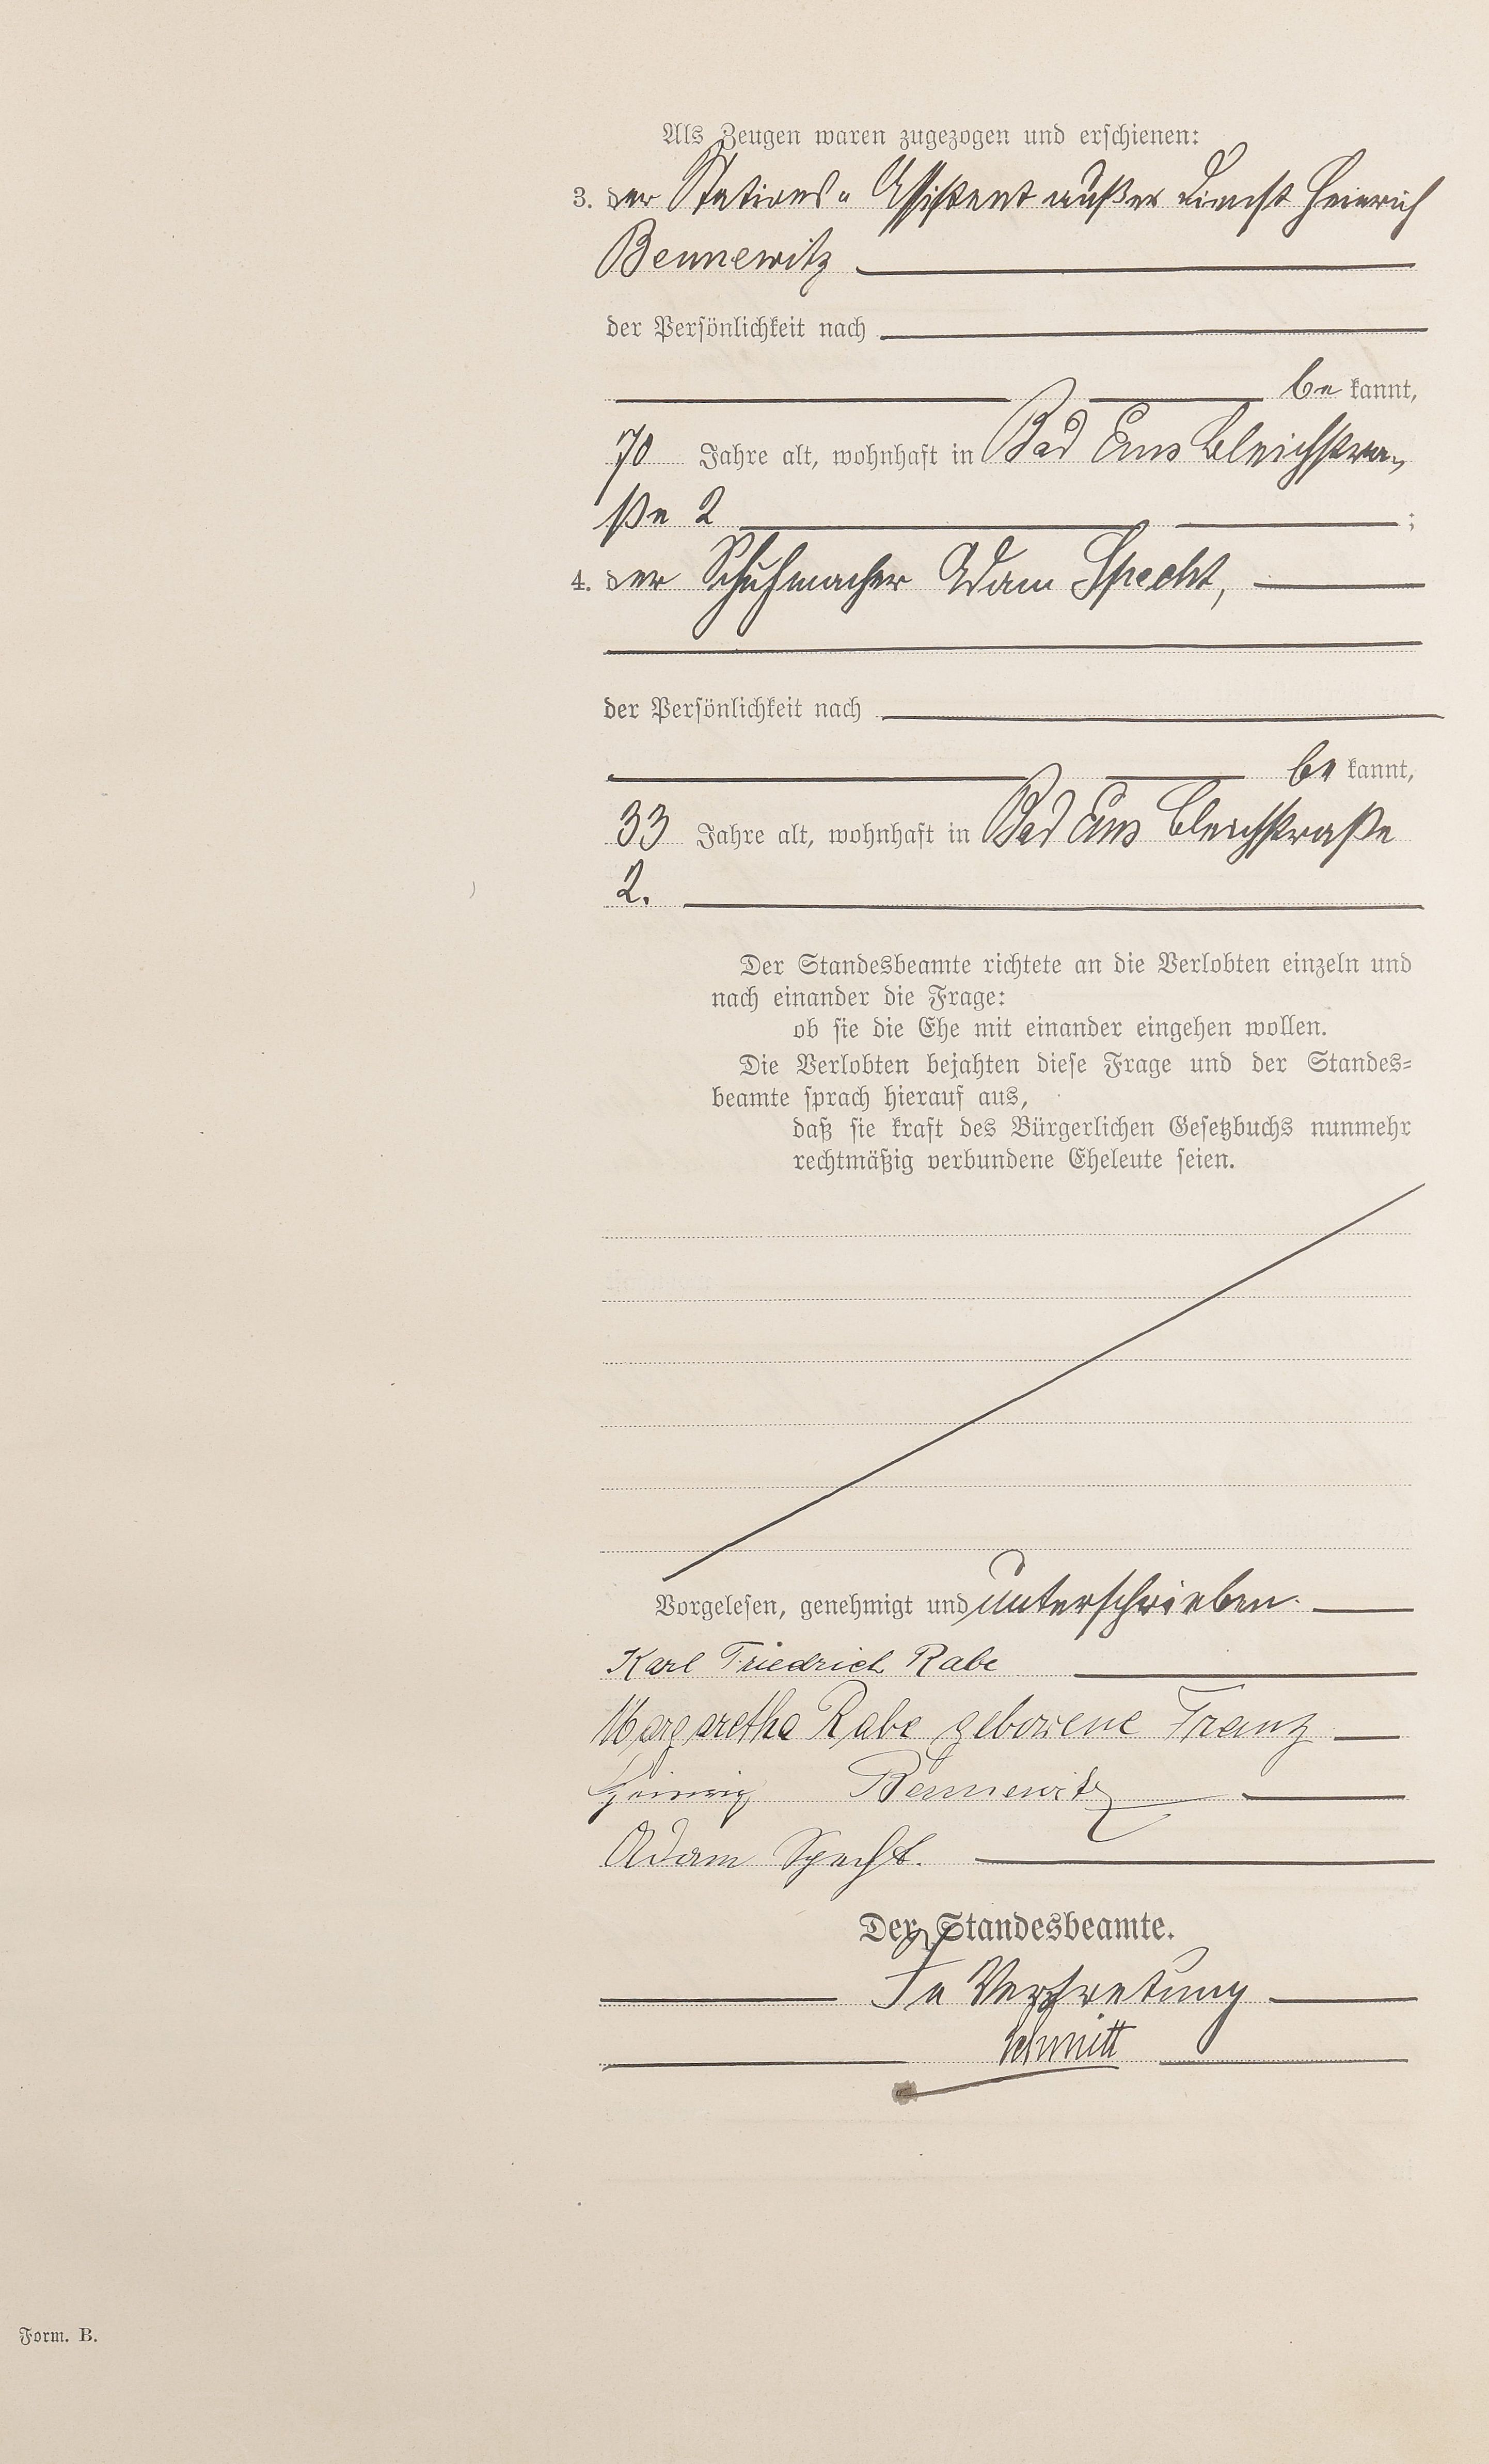 Als Zeugen waren zugezogen und erschienen:
3. der Stations-Assistent außer Dienst Heinrich
Bennewitz
der Persönlichkeit nach
be kannt,
70 Jahre alt, wohnhaft in Bad Ems Bleichstra-
ße 2 ;
4. der Schuhmacher Adam Specht,
der Persönlichkeit nach
be kannt,
33 Jahre alt, wohnhaft in Bad Ems Bleichstraße
2.
Der Standesbeamte richtete an die Verlobten einzeln und
nach einander die Frage:
ob sie die Ehe mit einander eingehen wollen.
Die Verlobten bejahten diese Frage und der Standes-
beamte sprach hierauf aus,
daß sie kraft des Bürgerlichen Gesetzbuchs nunmehr
rechtmäßig verbundene Eheleute seien.
Vorgelesen, genehmigt und unterschrieben.
Karl Friedrich Rabe
Margaretha Rabe geborene Franz
Heinrich Bennewitz
Adam Specht.
Der Standesbeamte.
In Vertretung
Schmitt
Form. B.